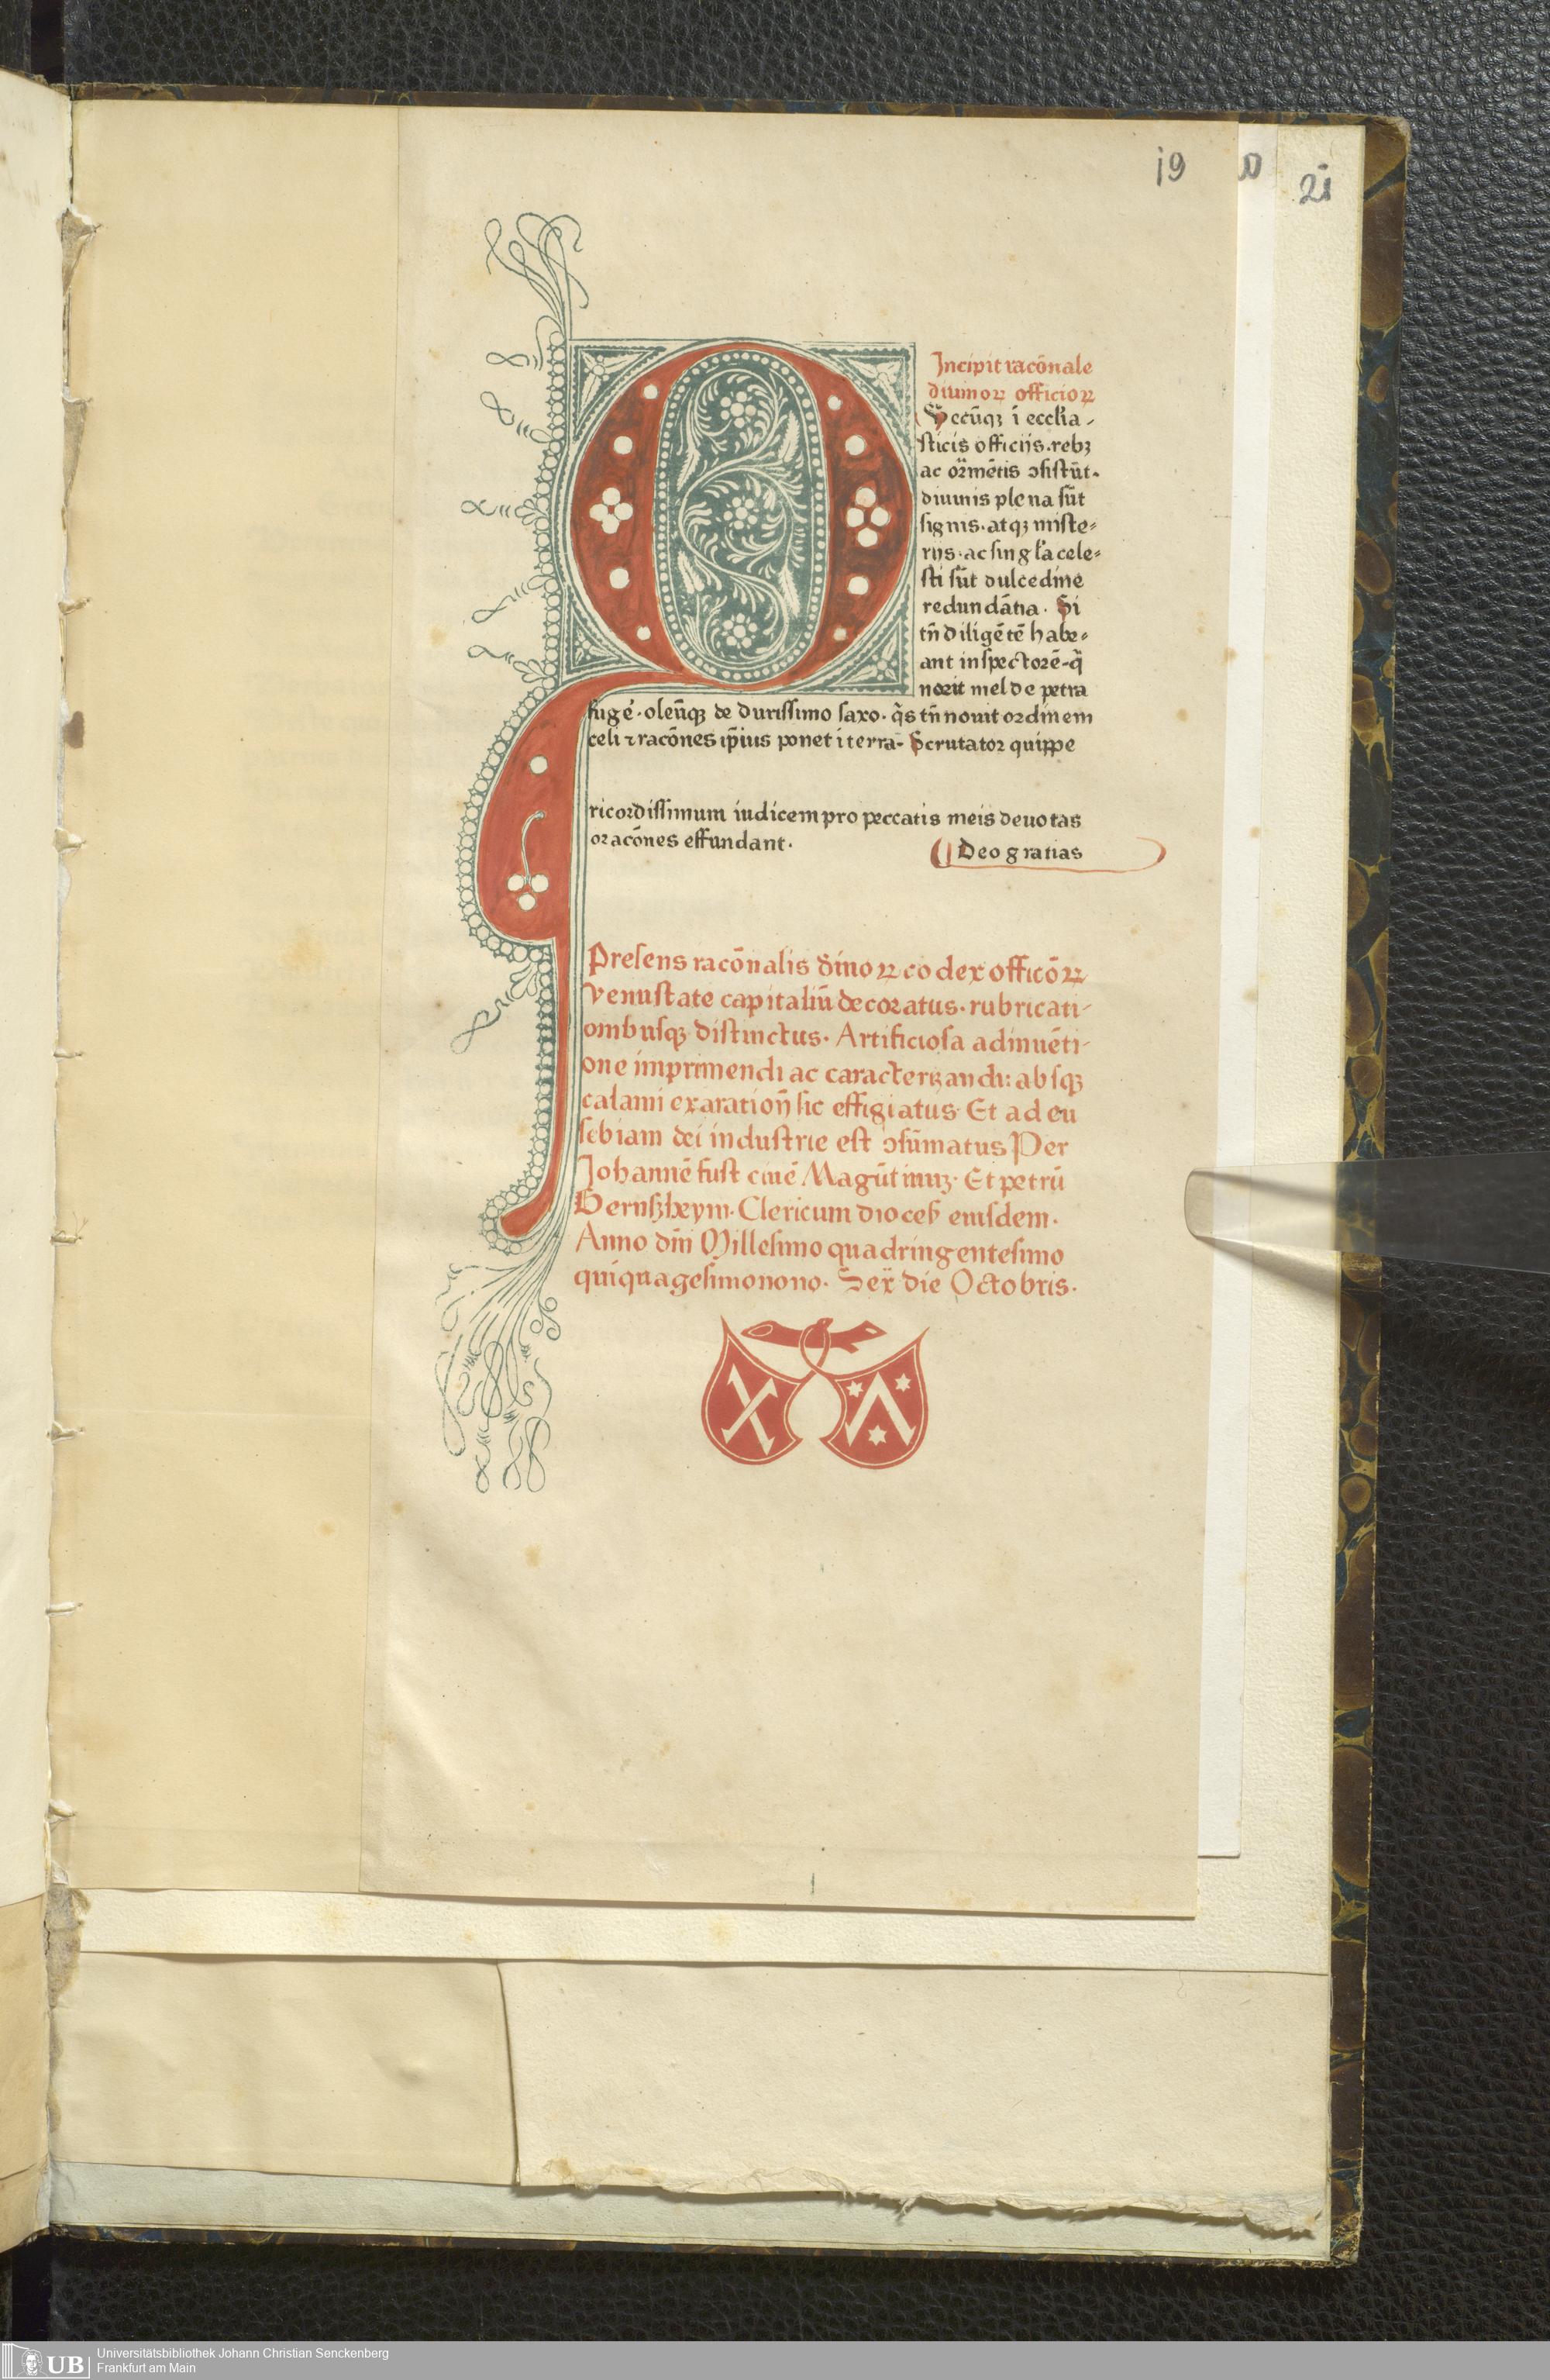 19
21
Incipit racōnale
diuinoꝝ officioꝝ
Q
Vecūqꝫ ī eccl'ia-
sticis officijs.rebꝫ
ac orn̄mētis ↄsistūt.
diuinis plena sūt
signis.atqꝫ miste-
rijs.ac singl'a cele-
sti sūt dulcedine
redundātia. Si
tn̄ diligētē habe-
ant inspectorē.q̄
norit mel de petra
suge'.oleūqꝫ de durissimo saxo. q̄s tn̄ nouit ordinem
celi ⁊ racōnes ip̄ius ponet ī terra. Scrutator quippe
ricordissimum iudicem pro peccatis meis deuotas
oracōnes effundant.
Deo gratias
Presens racōnalis diuinoꝝ codex officōꝝ
venustate capitaliū decoratus. rubricati-
onibusqꝫ distinctus. Artificiosa adinuēti-
one imprimendi ac caracterizandi: absqꝫ
calami exarationn̄ sic effigiatus. Et ad eu
sebiam dei industrie est ↄsūmatus Per
Johannē fust ciuē Magūtinuꝫ. Et petrū
Gernsꝫheym. Clericum dioceß eiusdem.
Anno dn̄i Millesimo quadringentesimo
quīquagesimonono. Sex̄ die Octobris.
UB
Universitätsbibliothek Johann Christian Senckenberg
Frankfurt am Main